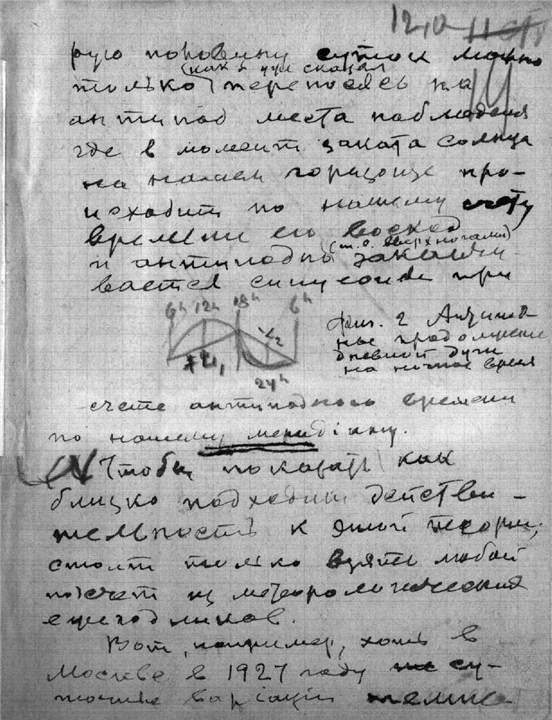 12,10
рую половину суток можно
(как я уже сказал)
только перенесясь на
антипод места наблюдения
где в момент заката солнца
на нашем горизонте про-
исходит по нашему счету
времени его восход
(т.е. вверх ногами)
и антиподно заканчи-
вается синусоида при
6h 12h 18h 6h
24h
Фиг. 2 Антипод-
ное продолжение
дневной дуги
на ночное время
счете антиподного времени
по нашему меридиану.
Чтобы показать как
близко подходит действи-
тельность к этой теории,
стоит только взять любой
отчет из метеорологических
ежегодников.
Вот, например, хоть в
Москве в 1927 году су-
точные вариации темпе-